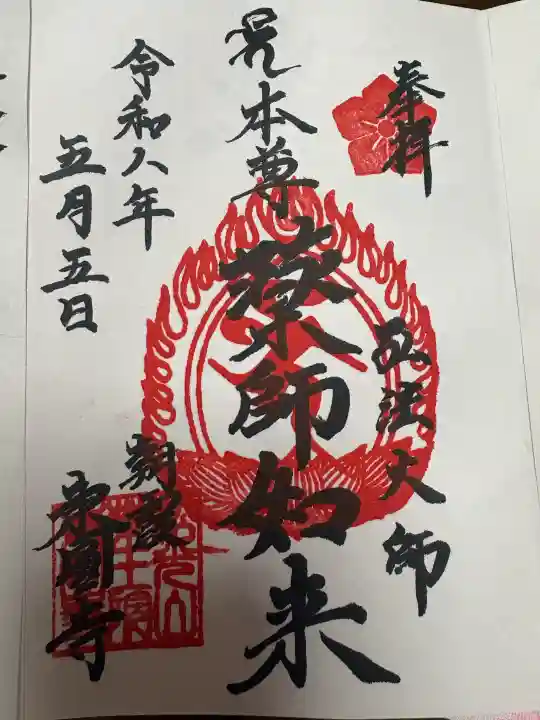 奉拝
弘法大師
御本尊
薬師如来
令和八年
五月五日
寺